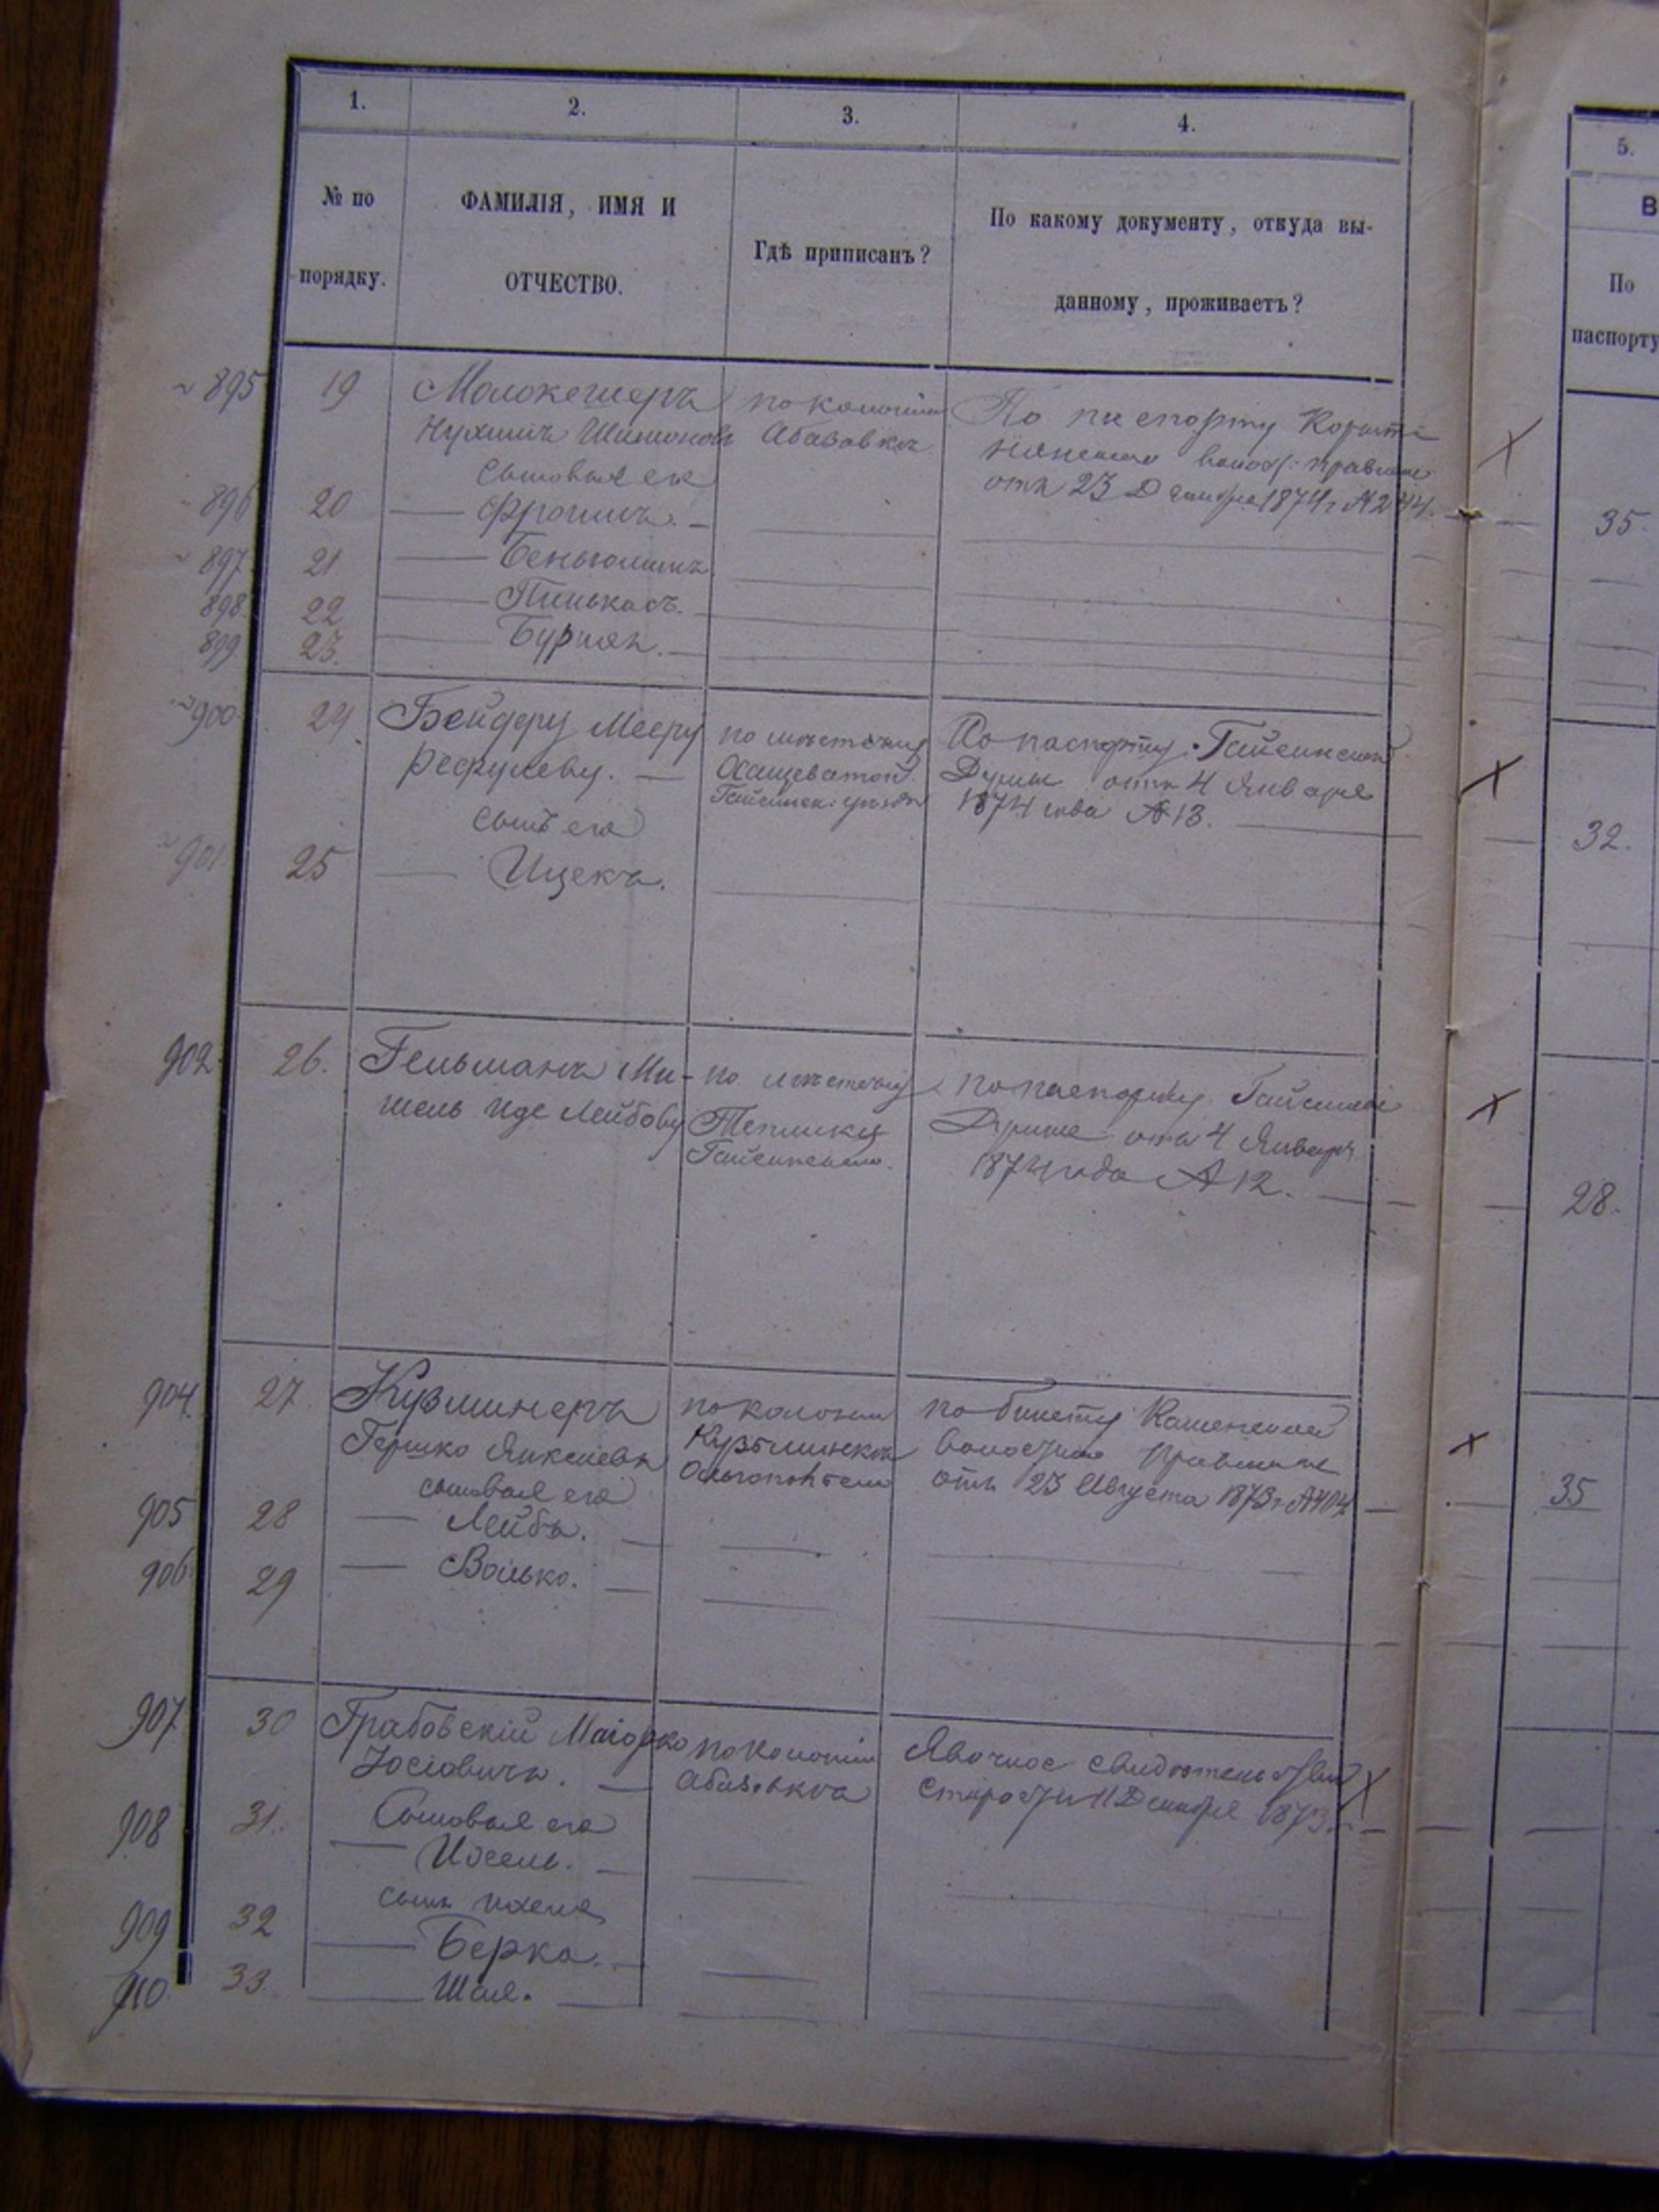 1.
2.
3.
4.
5.
№ по
порядку.
ФАМИЛІЯ, ИМЯ И
ОТЧЕСТВО.
Гдѣ приписанъ?
По какому документу, откуда вы-
данному, проживаетъ?
В
По
паспорту
895 19 Молокешеръ по колоніи По паспорту
Нухимъ Шимоновъ Абазовкѣ правленія
сыновья его
отъ 23 Декабря 1874 г № 244.
896 20 — Фроимъ. —
35.
897 21 — Беньюминъ
898 22 — Пинькасъ.
899 23. — Бурихъ. —
900 24 Бейдеру Мееру по мѣстечку По паспорту Гайсинской
Рефулеву. — Хащеватой Думы отъ 4 Января
Гайсинск: уѣзда 1874 года № 13.
сынъ его
32.
901 25 — Ицекъ.
902 26. Гельманъ Ми- по мѣстечку по паспорту Гайсинской
шель Иде Лейбову Теплику Думы отъ 4 Января
Гайсинскаго. 1874 года № 12. —
28.
904 27. Кузминеръ по колоніи по билету Каменской
Гершко Янкелевъ волостнаго Правленія
сыновья его отъ 23 Августа 1873 г № 404 —
35
905 28 — Лейба. —
906 29 — Волько. —
907 30 Грабовскій Маіорко по колоніи Явочное свидѣтельство
Іосіовичъ. — Абазовка Старосты 11 Декабря 1873 г. —
908 31. Сыновья его
— Иосель. —
сынъ
909 32 — Берко. —
910 33. — Шая. —